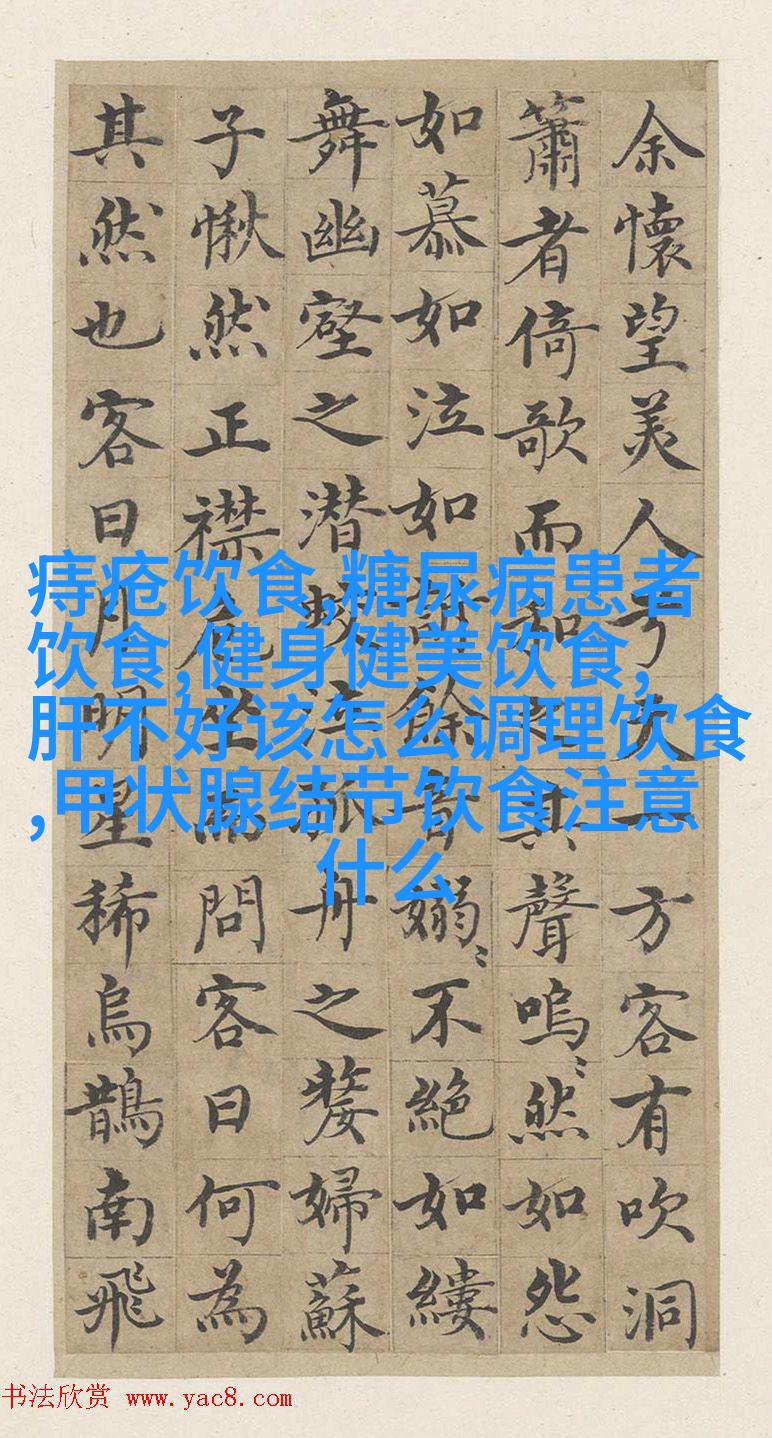 余懷望美人兮天一方客有吹洞
簫者倚歌而和之其聲嗚〻然如怨
如慕如泣如訴餘音嫋〻不絕如縷
舞幽壑之潛蛟泣孤舟之嫠婦蘇
子愀然正襟危坐而問客曰何為
其然也客曰月明星稀烏鵲南飛
痔疮饮食,糖尿病患者
饮食,健身健美饮食,
肝不好该怎么调理饮食
,甲状腺结节饮食注意
什么
书法欣赏 www.yac8.com